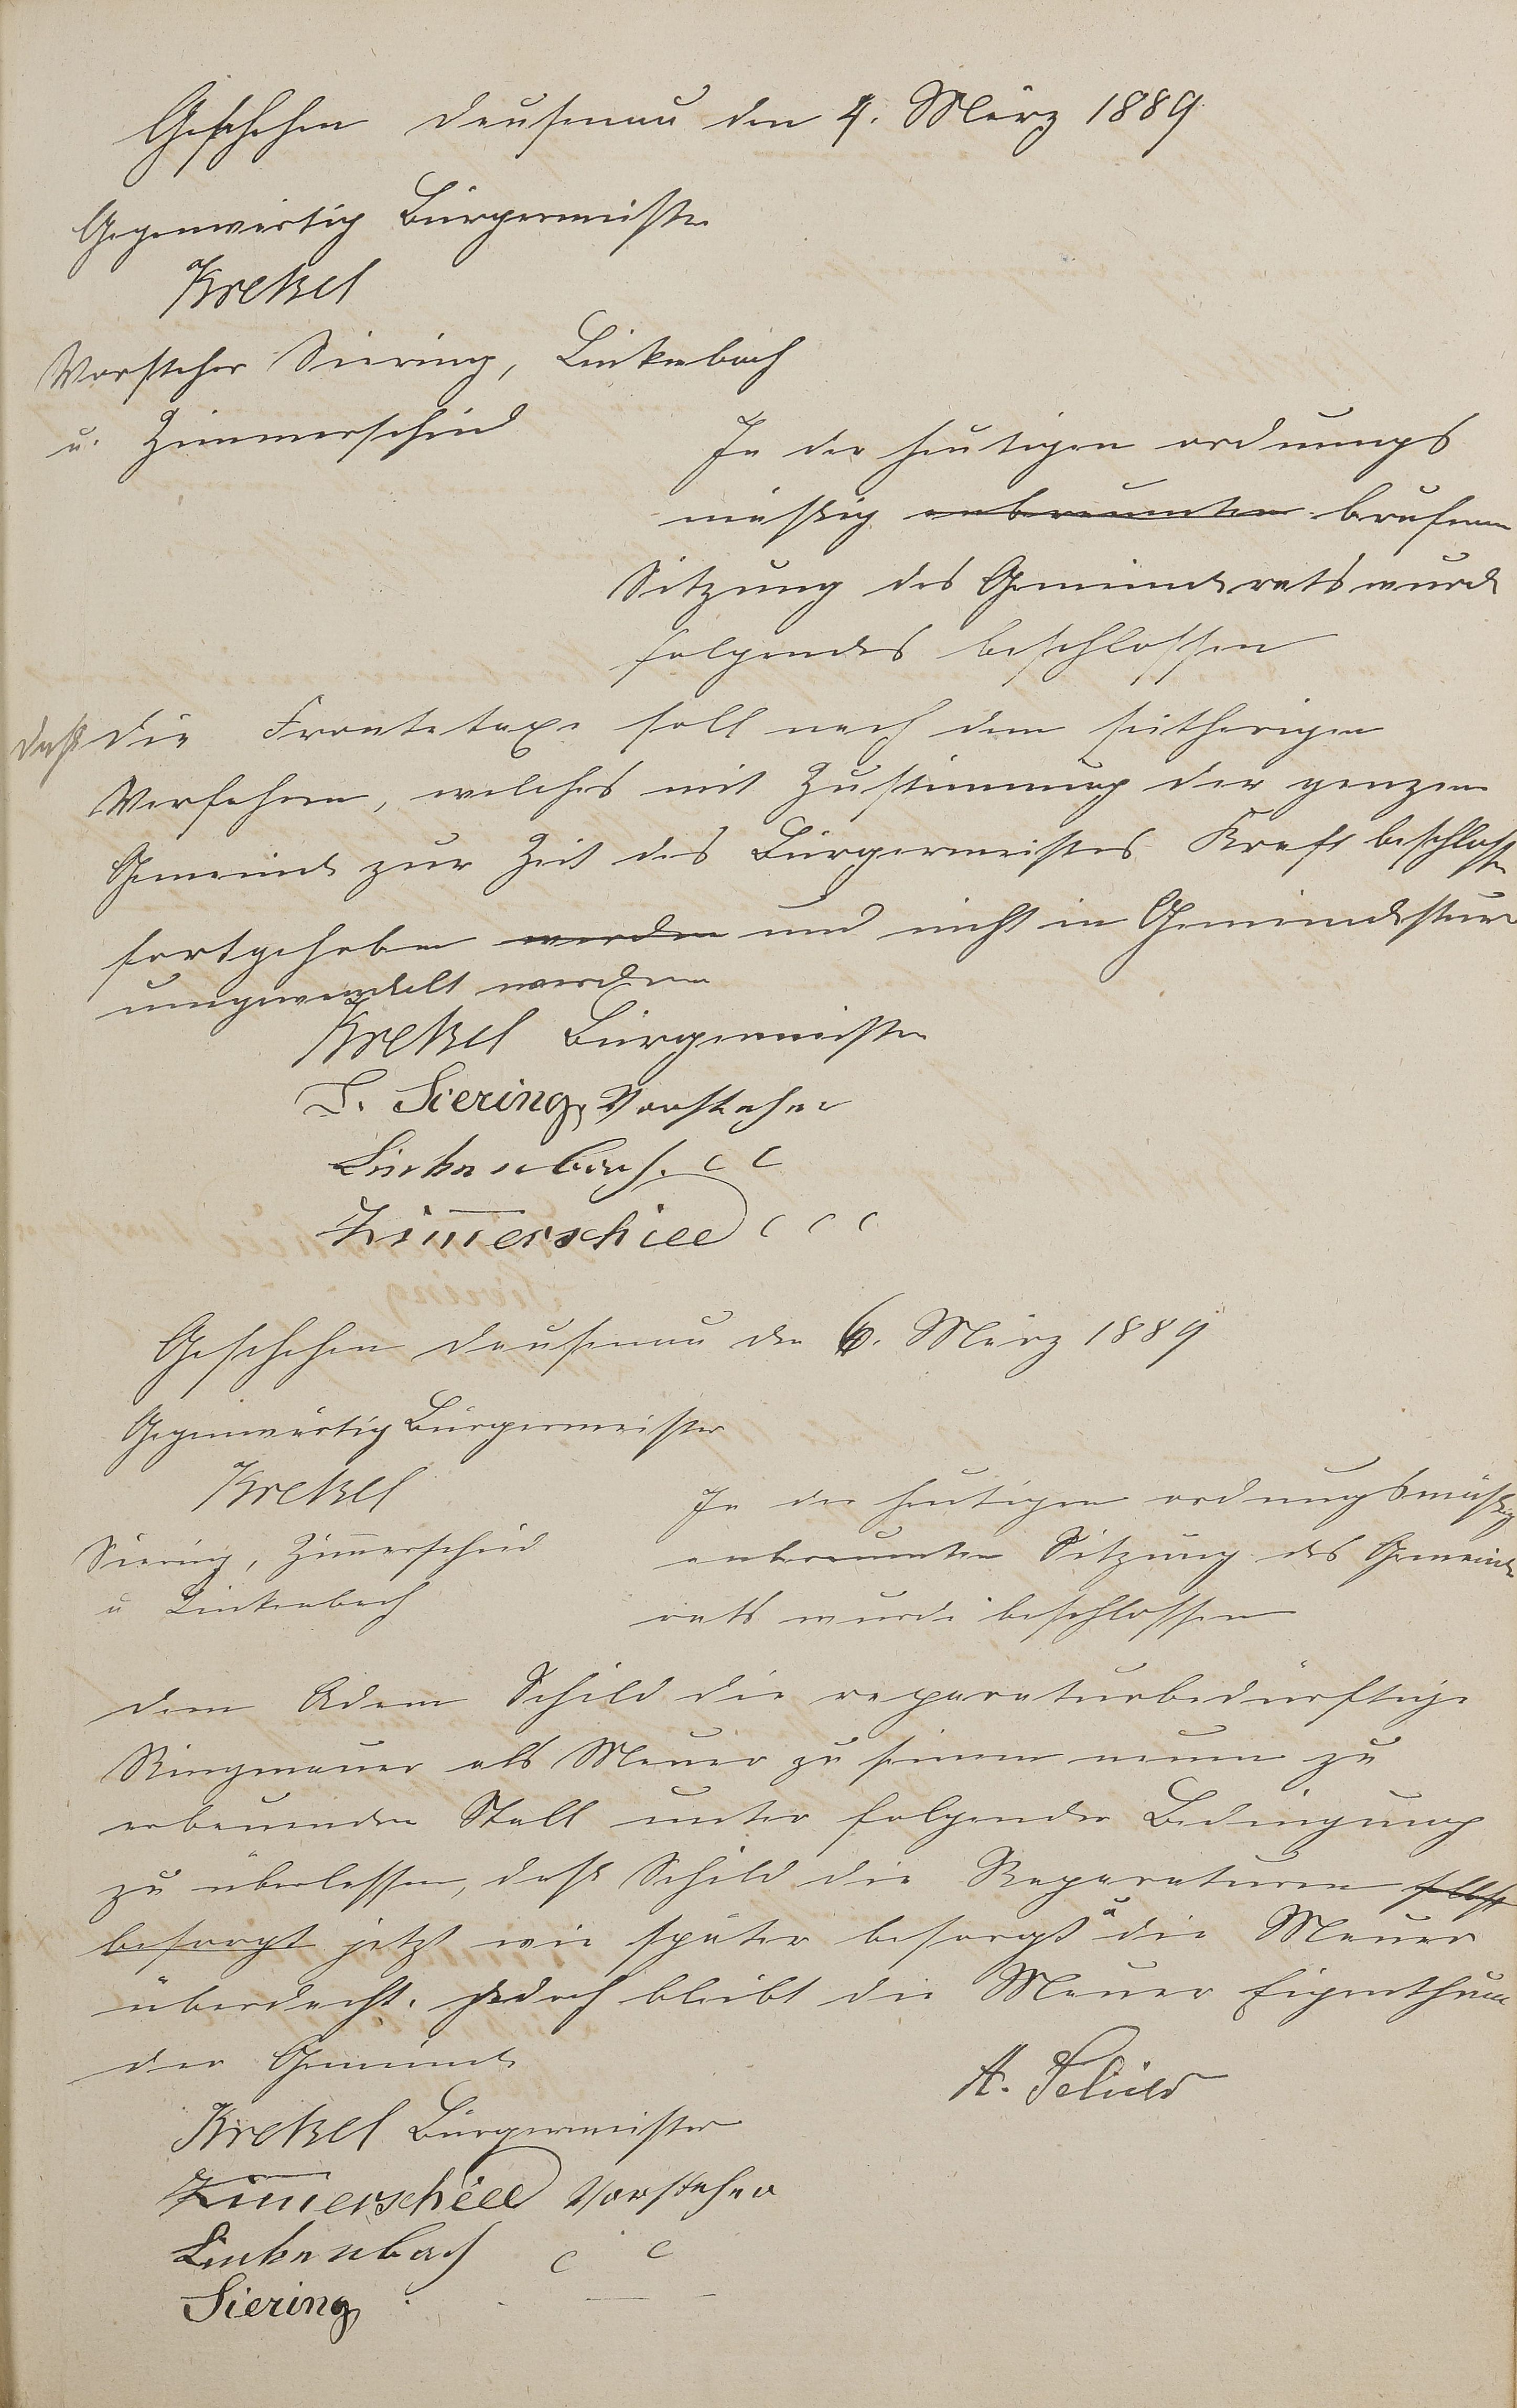 Geschehen Dausenau den 4. März 1889
Gegenwärtig Bürgermeister
Krekel
Vorsteher Siering, Linkenbach
u. Zimmerscheid
In der heutigen ordnungs
mäßig anberaumten berufenen
Sitzung des Gemeinderats wurde
folgendes beschlossen
daß die Frontetaxe soll nach dem seitherigen
Verfahren, welches mit Zustimmung der ganzen
Gemeinde zur Zeit des Bürgermeisters Kraft beschlossen
fortgehoben werden und nicht in Gemeindesteuer
umgewandelt werden
Krekel Bürgermeister
Siering, Vorsteher
Linkenbach. c c
Zimerscheid c c c
Geschehen Dausenau den 6. März 1889
Gegenwärtig Bürgermeister
Krekel
In der heutigen ordnungsmäßig
Siering, Zimerscheid
anberaumten Sitzung des Gemeinde
u Linkenbach
rats wurde beschlossen
dem Adam Schild die reparaturbedürftige
Ringmauer als Mauer zu seinem neuen zu
erbauenden Stall unter folgender Bedingung
zu überlassen, daß Schild die Reparaturen selbst
besorgt jetzt wie später besorgt u die Mauer
überdacht. jedoch bleibt die Mauer Eigenthum
der Gemeinde
A. Schild
Krekel Bürgermeister
Zimerscheid Vorsteher
Linkenbach c c
Siering